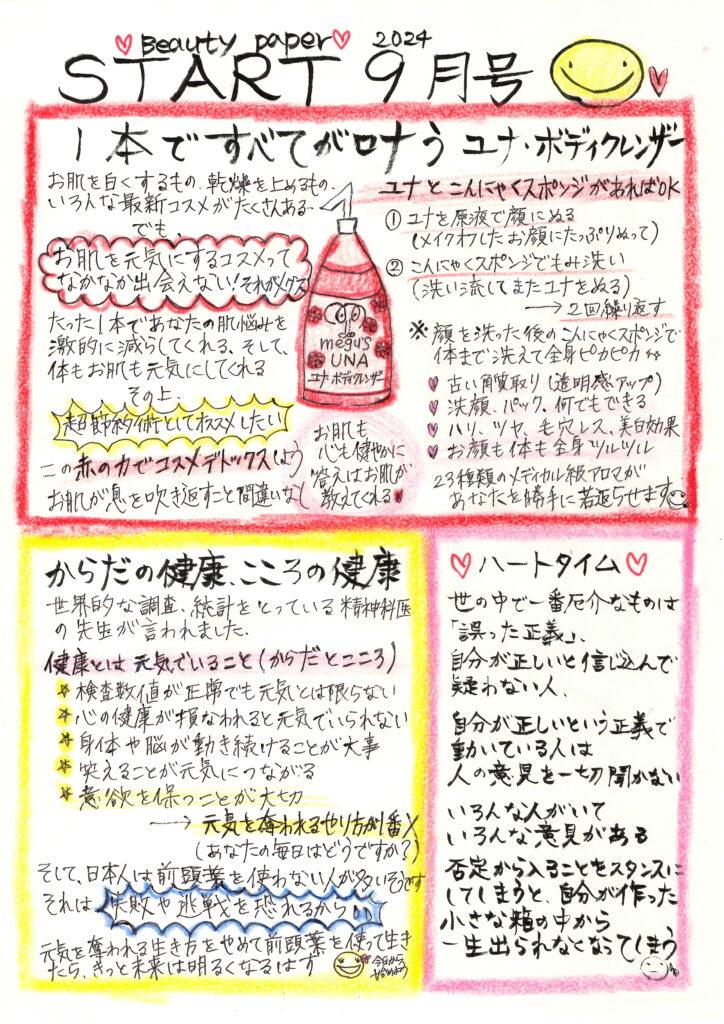 Beauty paper 2024
START 9月号
1本ですべてがロナう ユナ・ボディクレンザー
お肌を白くするもの、乾燥を止めるもの、
いろんな最新コスメがたくさんある
でも、
お肌を元気にするコスメって
なかなか出会えない!それがメグス
たった1本であなたの肌悩みを
激的に減らしてくれる、そして、
体もお肌も元気にしてくれる
その上、
超節約術としてオススメしたい
この赤の力でコスメデトックスしよう
お肌が息を吹き返すこと間違いなし
megu's
UNA
ユナ ボディクレンザー
お肌も
心も健やかに
答えはお肌が
教えてくれる
ユナとこんにゃくスポンジがあればOK
① ユナを原液で顔にぬる
(メイクオフしたお顔にたっぷりぬって)
② こんにゃくスポンジでもみ洗い
(洗い流してまたユナをぬる)
→2回繰り返す
※ 顔を洗った後のこんにゃくスポンジで
体まで洗えて全身ピカピカ
古い角質取り(透明感アップ)
洗顔、パック、何でもできる
ハリ、ツヤ、毛穴レス、美白効果
お顔も体も全身ツルツル
23種類のメディカル級アロマが
あなたを勝手に若返らせます
からだの健康、こころの健康
世界的な調査、統計をとっている精神科医
の先生が言われました、
健康とは 元気でいること(からだとこころ)
* 検査数値が正常でも元気とは限らない
* 心の健康が損なわれると元気でいられない
* 身体や脳が動き続けることが大事
* 笑えることが元気につながる
* 意欲を保つことが大切
→ 元気を奪われるやり方が1番×
(あなたの毎日はどうですか?)
そして、日本人は前頭葉を使わない人が多いそうです
それは 失敗や挑戦を恐れるから
元気を奪われる生き方をやめて前頭葉を使って生き
たら、きっと未来は明るくなるはず
今日から
始めよう
ハートタイム
世の中で一番厄介なものは
「誤った正義」、
自分が正しいと信じ込んで
疑わない人、
自分が正しいという正義で
動いている人は
人の意見を一切聞かない
いろんな人がいて
いろんな意見がある
否定から入ることをスタンスに
してしまうと、自分が作った
小さな箱の中から
一生出られなくなってしまう